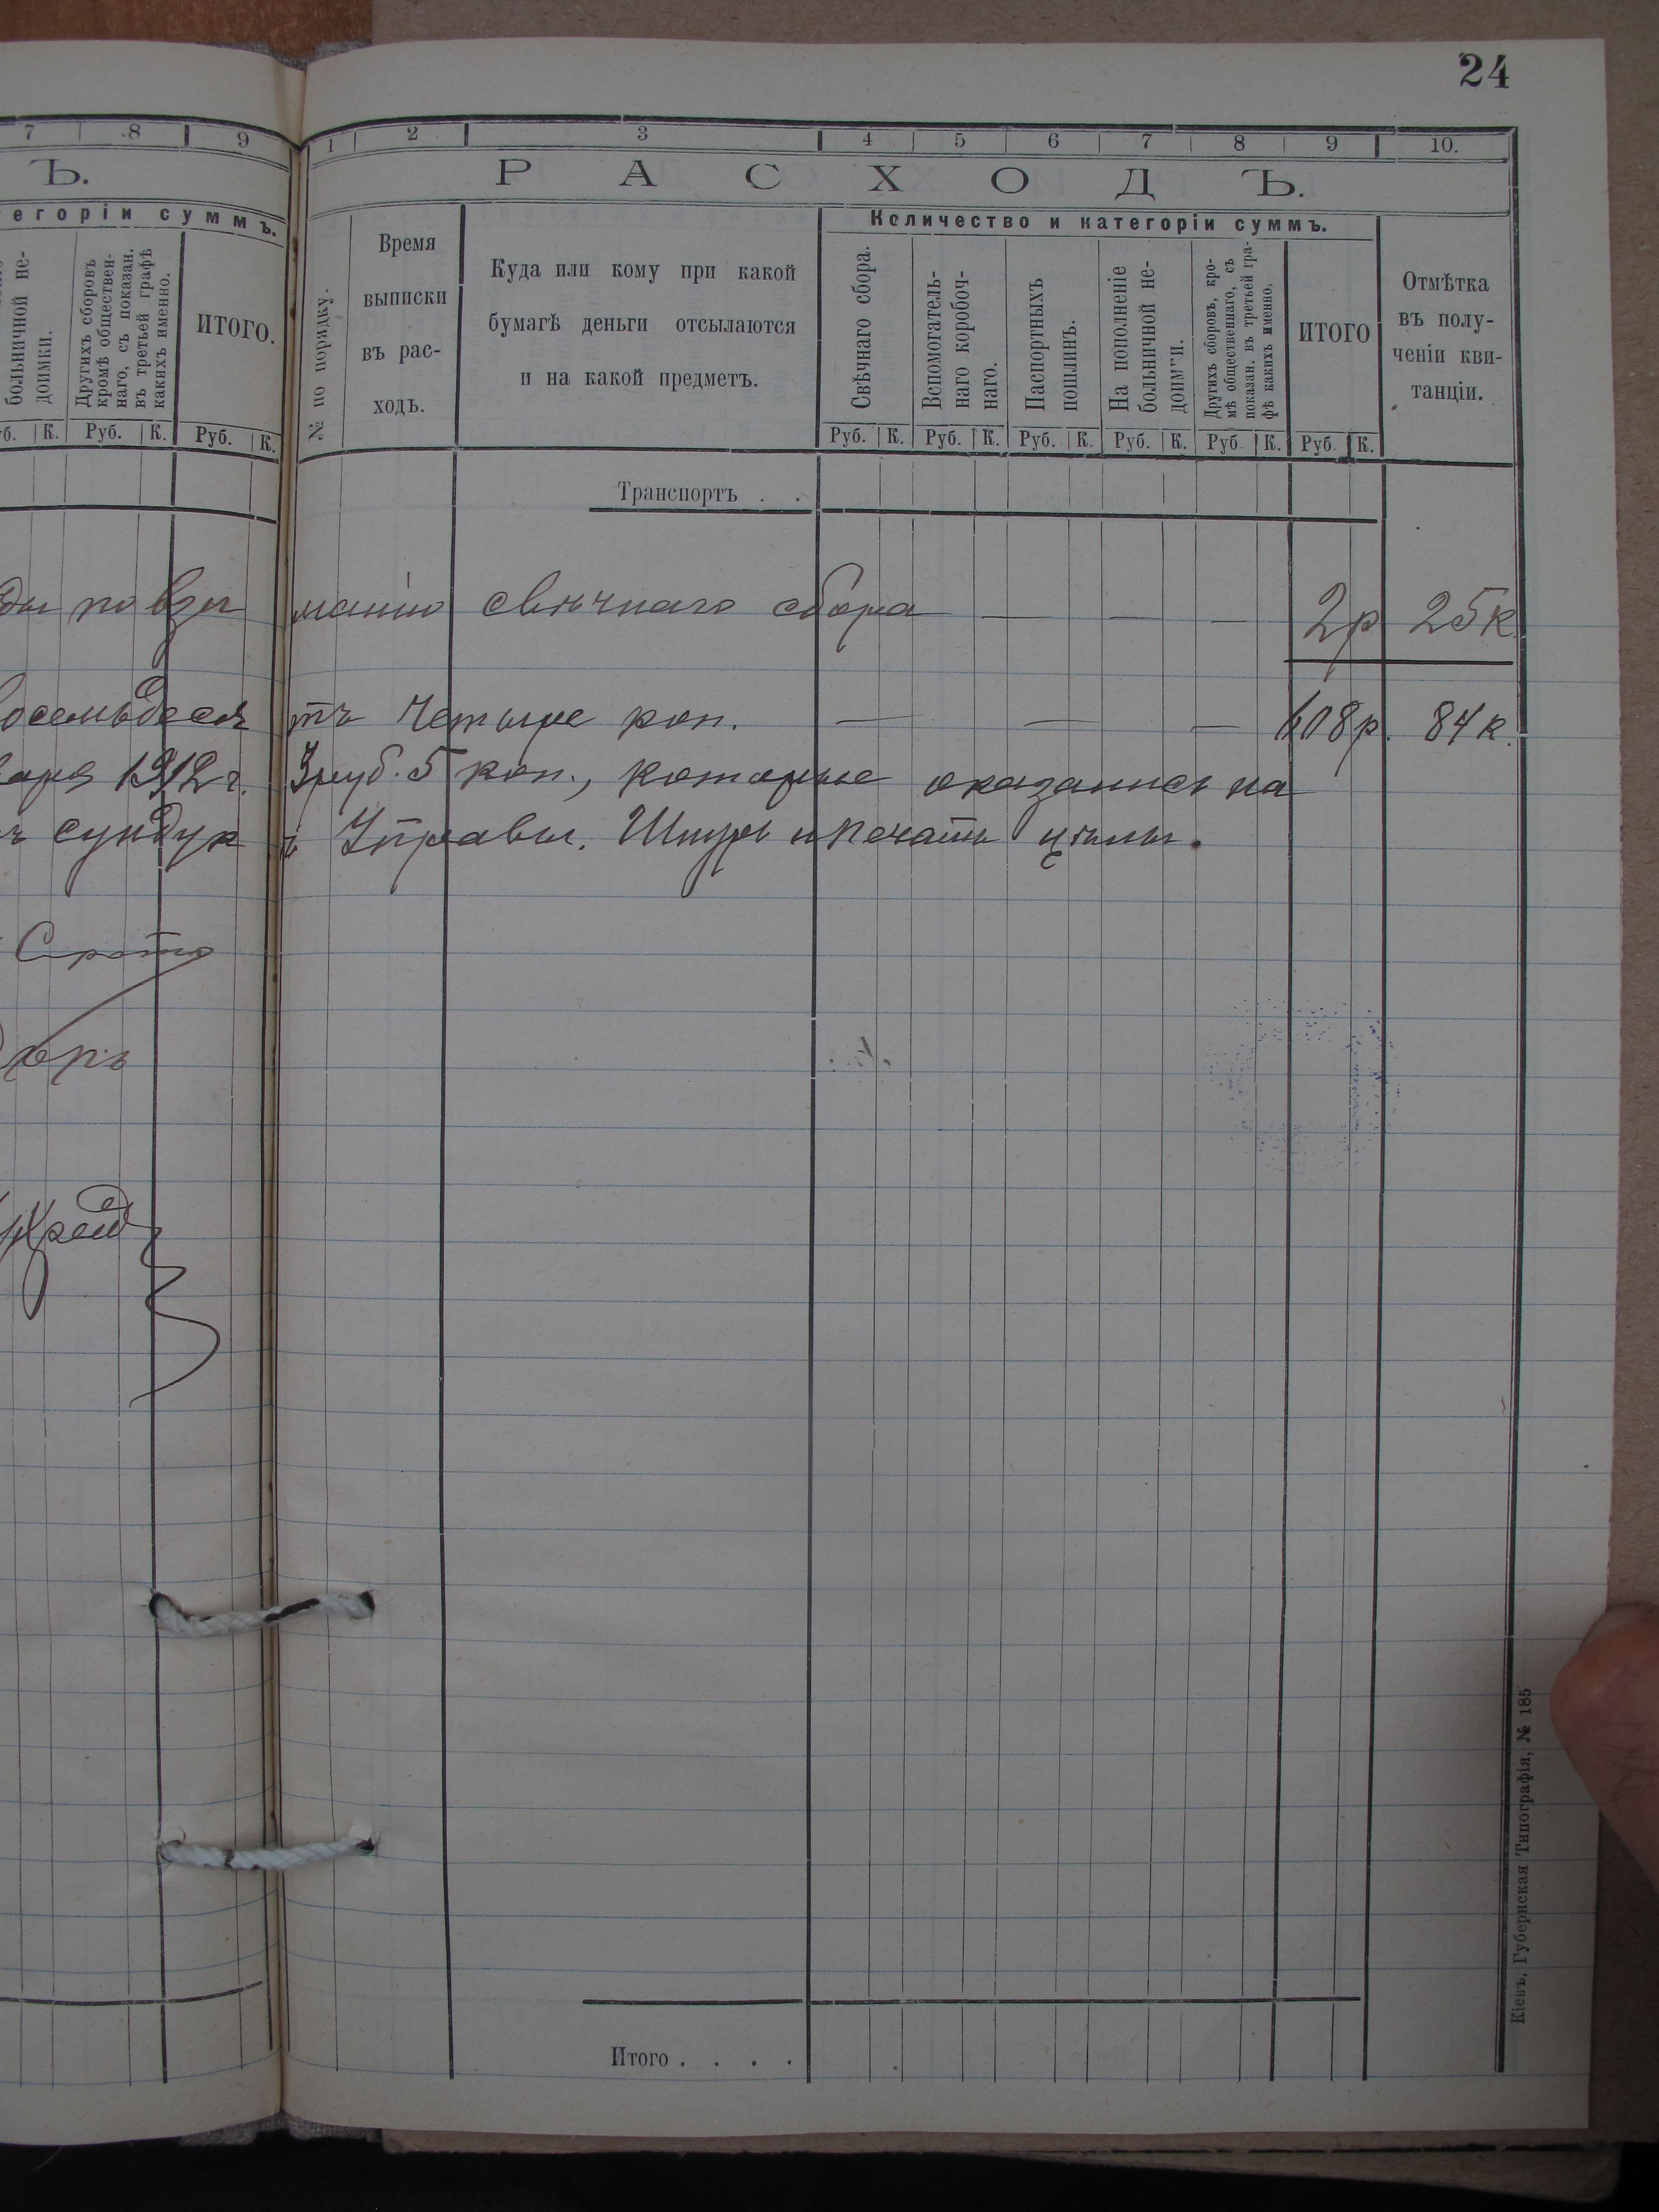 24
7 8 9
Ъ.
тегоріи суммъ.
больничной не-
доимки.
Другихъ сборовъ
кромѣ обществен-
наго, съ показан.
въ третьей графѣ
какихъ именно.
ИТОГО.
К. Руб. К. Руб. К.
1 2 3 4 5 6 7 8 9 10.
РАСХОДЪ.
№ по порядку.
Время
выписки
въ рас-
ходъ.
Куда или кому при какой
бумагѣ деньги отсылаются
и на какой предметъ.
Количество и категоріи суммъ.
Свѣчнаго сбора.
Вспомогатель-
наго коробоч-
наго.
Паспортныхъ
пошлинъ.
На пополненіе
больничной не-
доимки.
Другихъ сборовъ, кро-
мѣ общественнаго, съ
показан. въ третьей гра-
фѣ какихъ именно.
ИТОГО
Отмѣтка
въ полу-
ченіи кви-
танціи.
Руб. К. Руб. К. Руб. К. Руб. К. Руб. К. Руб. К.
Транспортъ . .
по взиманію свѣчнаго сбора — — — 2р 25к.
восемьдесятъ четыре коп. — — — 608р. 84к.
1912 г. 3 руб. 5 коп., которые оказались на
сундукѣ Управы. Шнуръ и печать цѣлы.
Итого . . . .
Кіевъ, Губернская Типографія, № 185